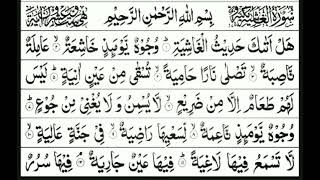 سُوْرَةُ الْغَاشِيَةِ بِسْمِ اللهِ الرَّحْمٰنِ الرَّحِيْمِ
هَلْ اَتٰىكَ حَدِيْثُ الْغَاشِيَةِ ۝ وُجُوْهٌ يَّوْمَئِذٍ خَاشِعَةٌ ۝ عَامِلَةٌ
نَّاصِبَةٌ ۝ تَصْلٰى نَارًا حَامِيَةً ۝ تُسْقٰى مِنْ عَيْنٍ اٰنِيَةٍ ۝ لَيْسَ
لَهُمْ طَعَامٌ اِلَّا مِنْ ضَرِيْعٍ ۝ لَّا يُسْمِنُ وَلَا يُغْنِيْ مِنْ جُوْعٍ ۝
وُجُوْهٌ يَّوْمَئِذٍ نَّاعِمَةٌ ۝ لِّسَعْيِهَا رَاضِيَةٌ ۝ فِيْ جَنَّةٍ عَالِيَةٍ ۝
لَّا تَسْمَعُ فِيْهَا لَاغِيَةً ۝ فِيْهَا عَيْنٌ جَارِيَةٌ ۝ فِيْهَا سُرُرٌ